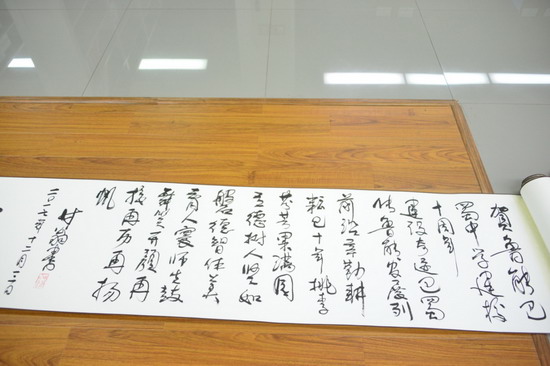 贺鲁能巴
蜀中学建校
十周年
建设奇迹巴蜀
传鲁能发展列
前班辛勤耕
耘已十年桃李
果满园
立德树人坚如
磐德智体美
育人寰师生鼓
舞笑开颜再
接再厉再扬
帆
书
二〇一七年十二月